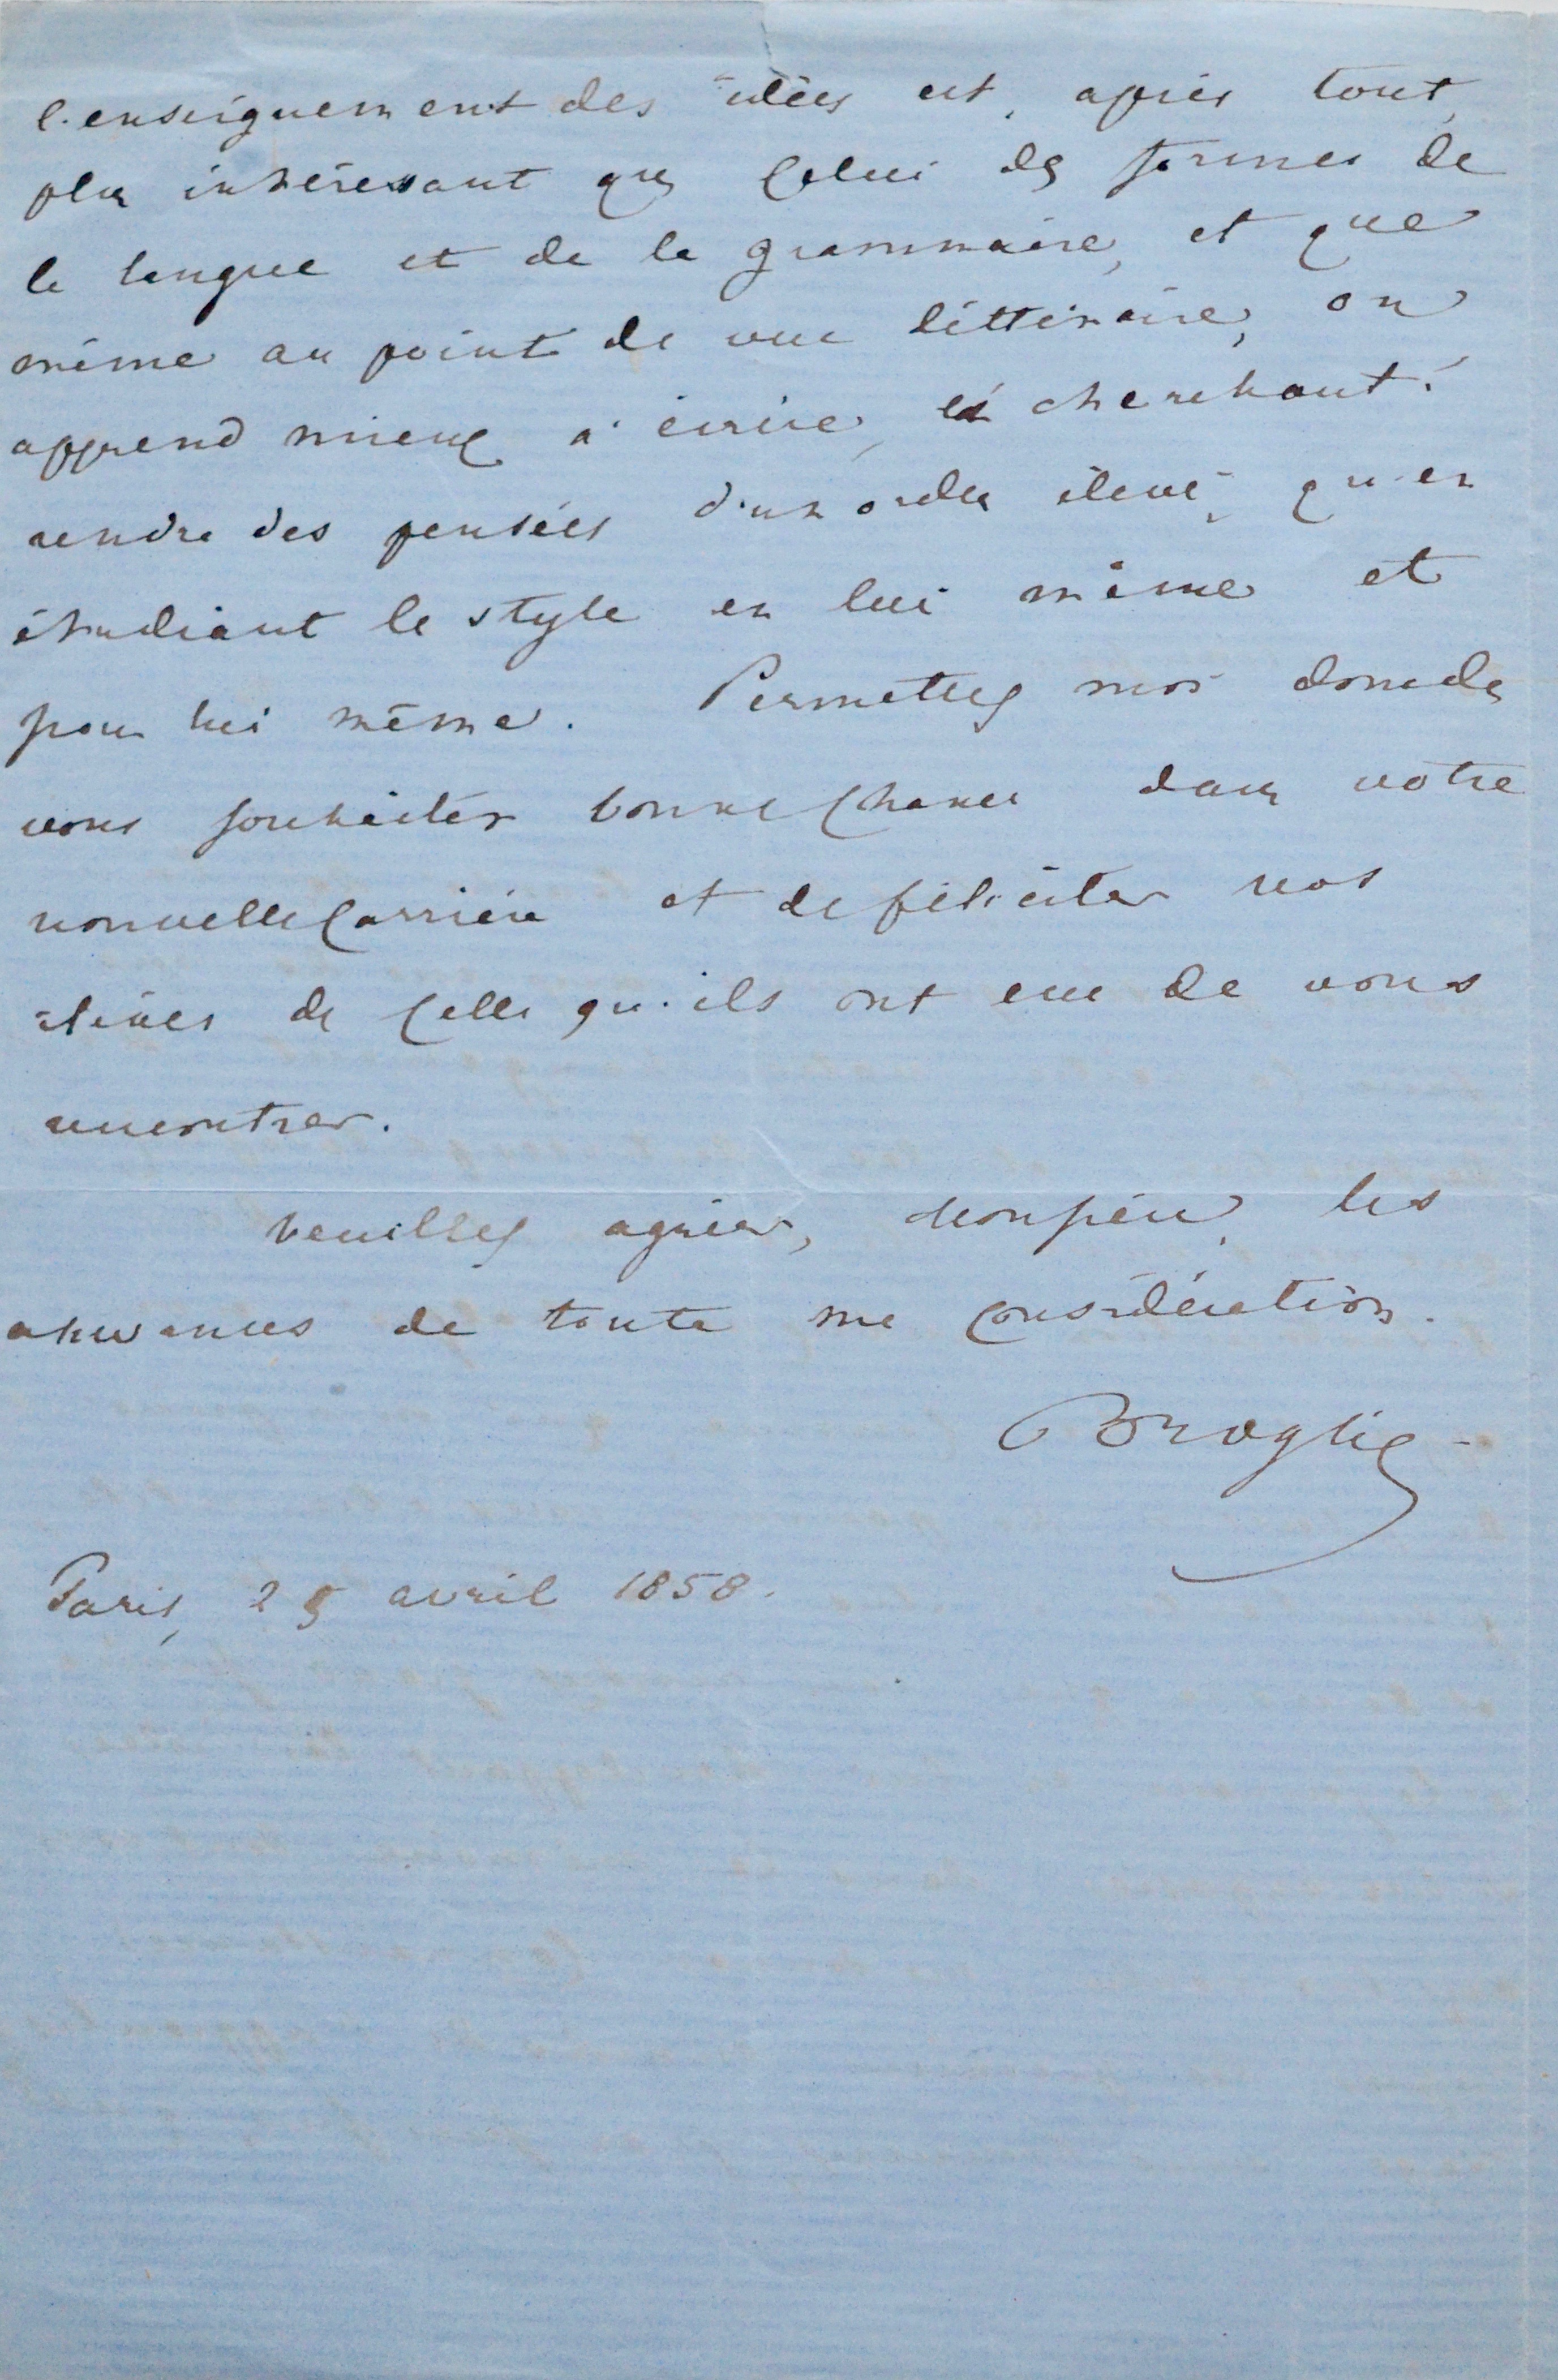 l'enseignement des idées est, après tout,
plus intéressant que celui des formes de
la langue et de la grammaire, et que
même au point de vue littéraire, on
apprend mieux à écrire, en cherchant à
rendre des pensées d'un ordre élevé, qu'en
étudiant le style en lui même et
pour lui même. Permettez moi donc de
vous souhaiter bonne chance dans votre
nouvelle carrière et de féliciter vos
élèves de celle qu'ils ont eue de vous
rencontrer.
Veuillez agréer, Monsieur, les
assurances de toute ma considération.
Broglie
Paris, 25 avril 1858.